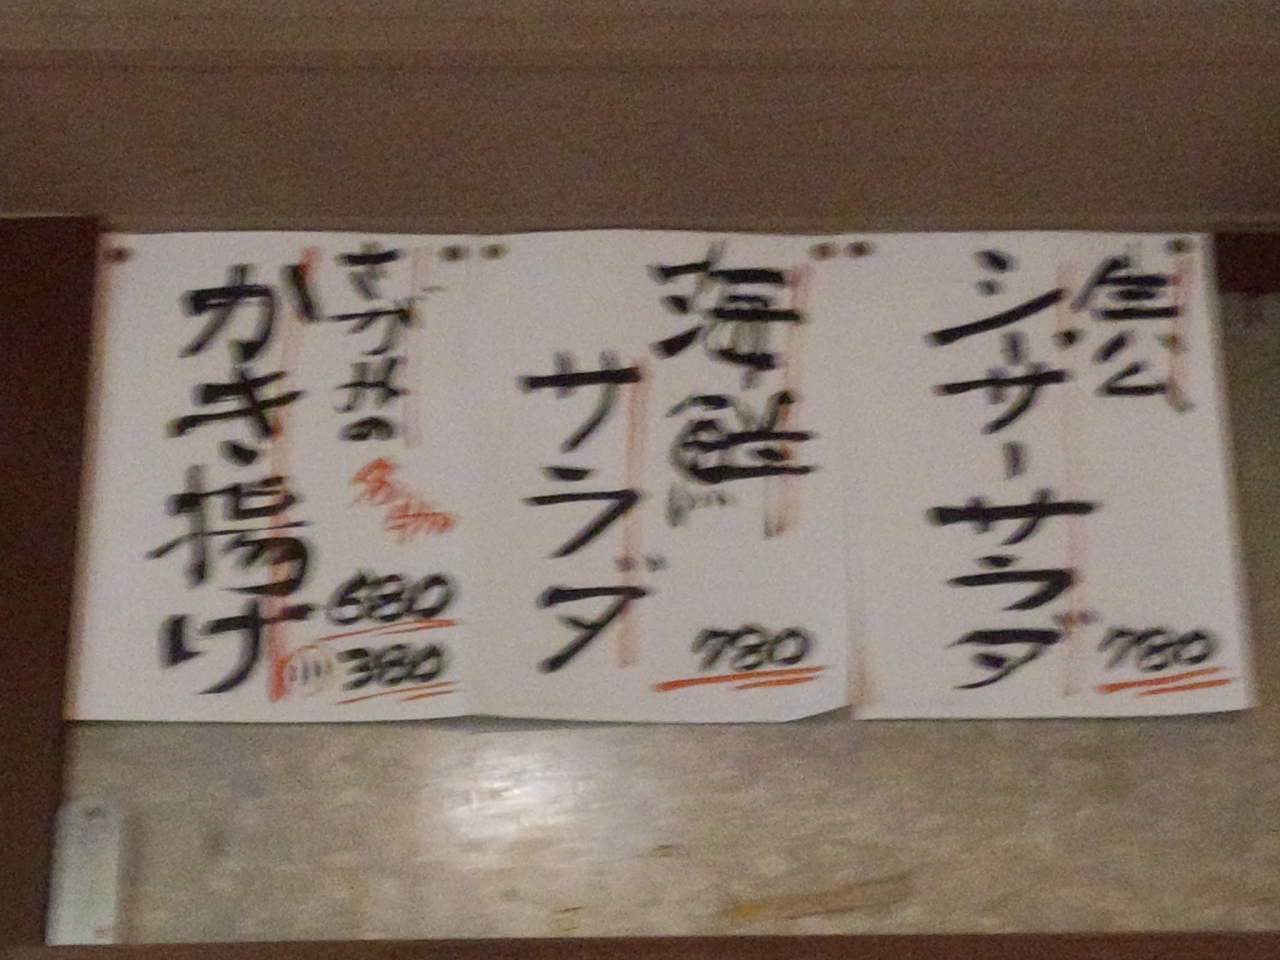 生ハム
シーザーサラダ
780
海鮮
サラダ
780
さがみの
名物
かき揚げ
680
小 380